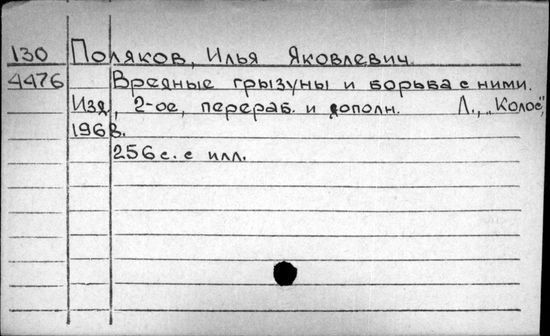 130 Поляков, Илья Яковлевич.
4476 Вредные грызуны и борьба с ними.
Изд, 2-ое, перераб. и дополн. Л., „Колос",
1968.
256 с. с илл.